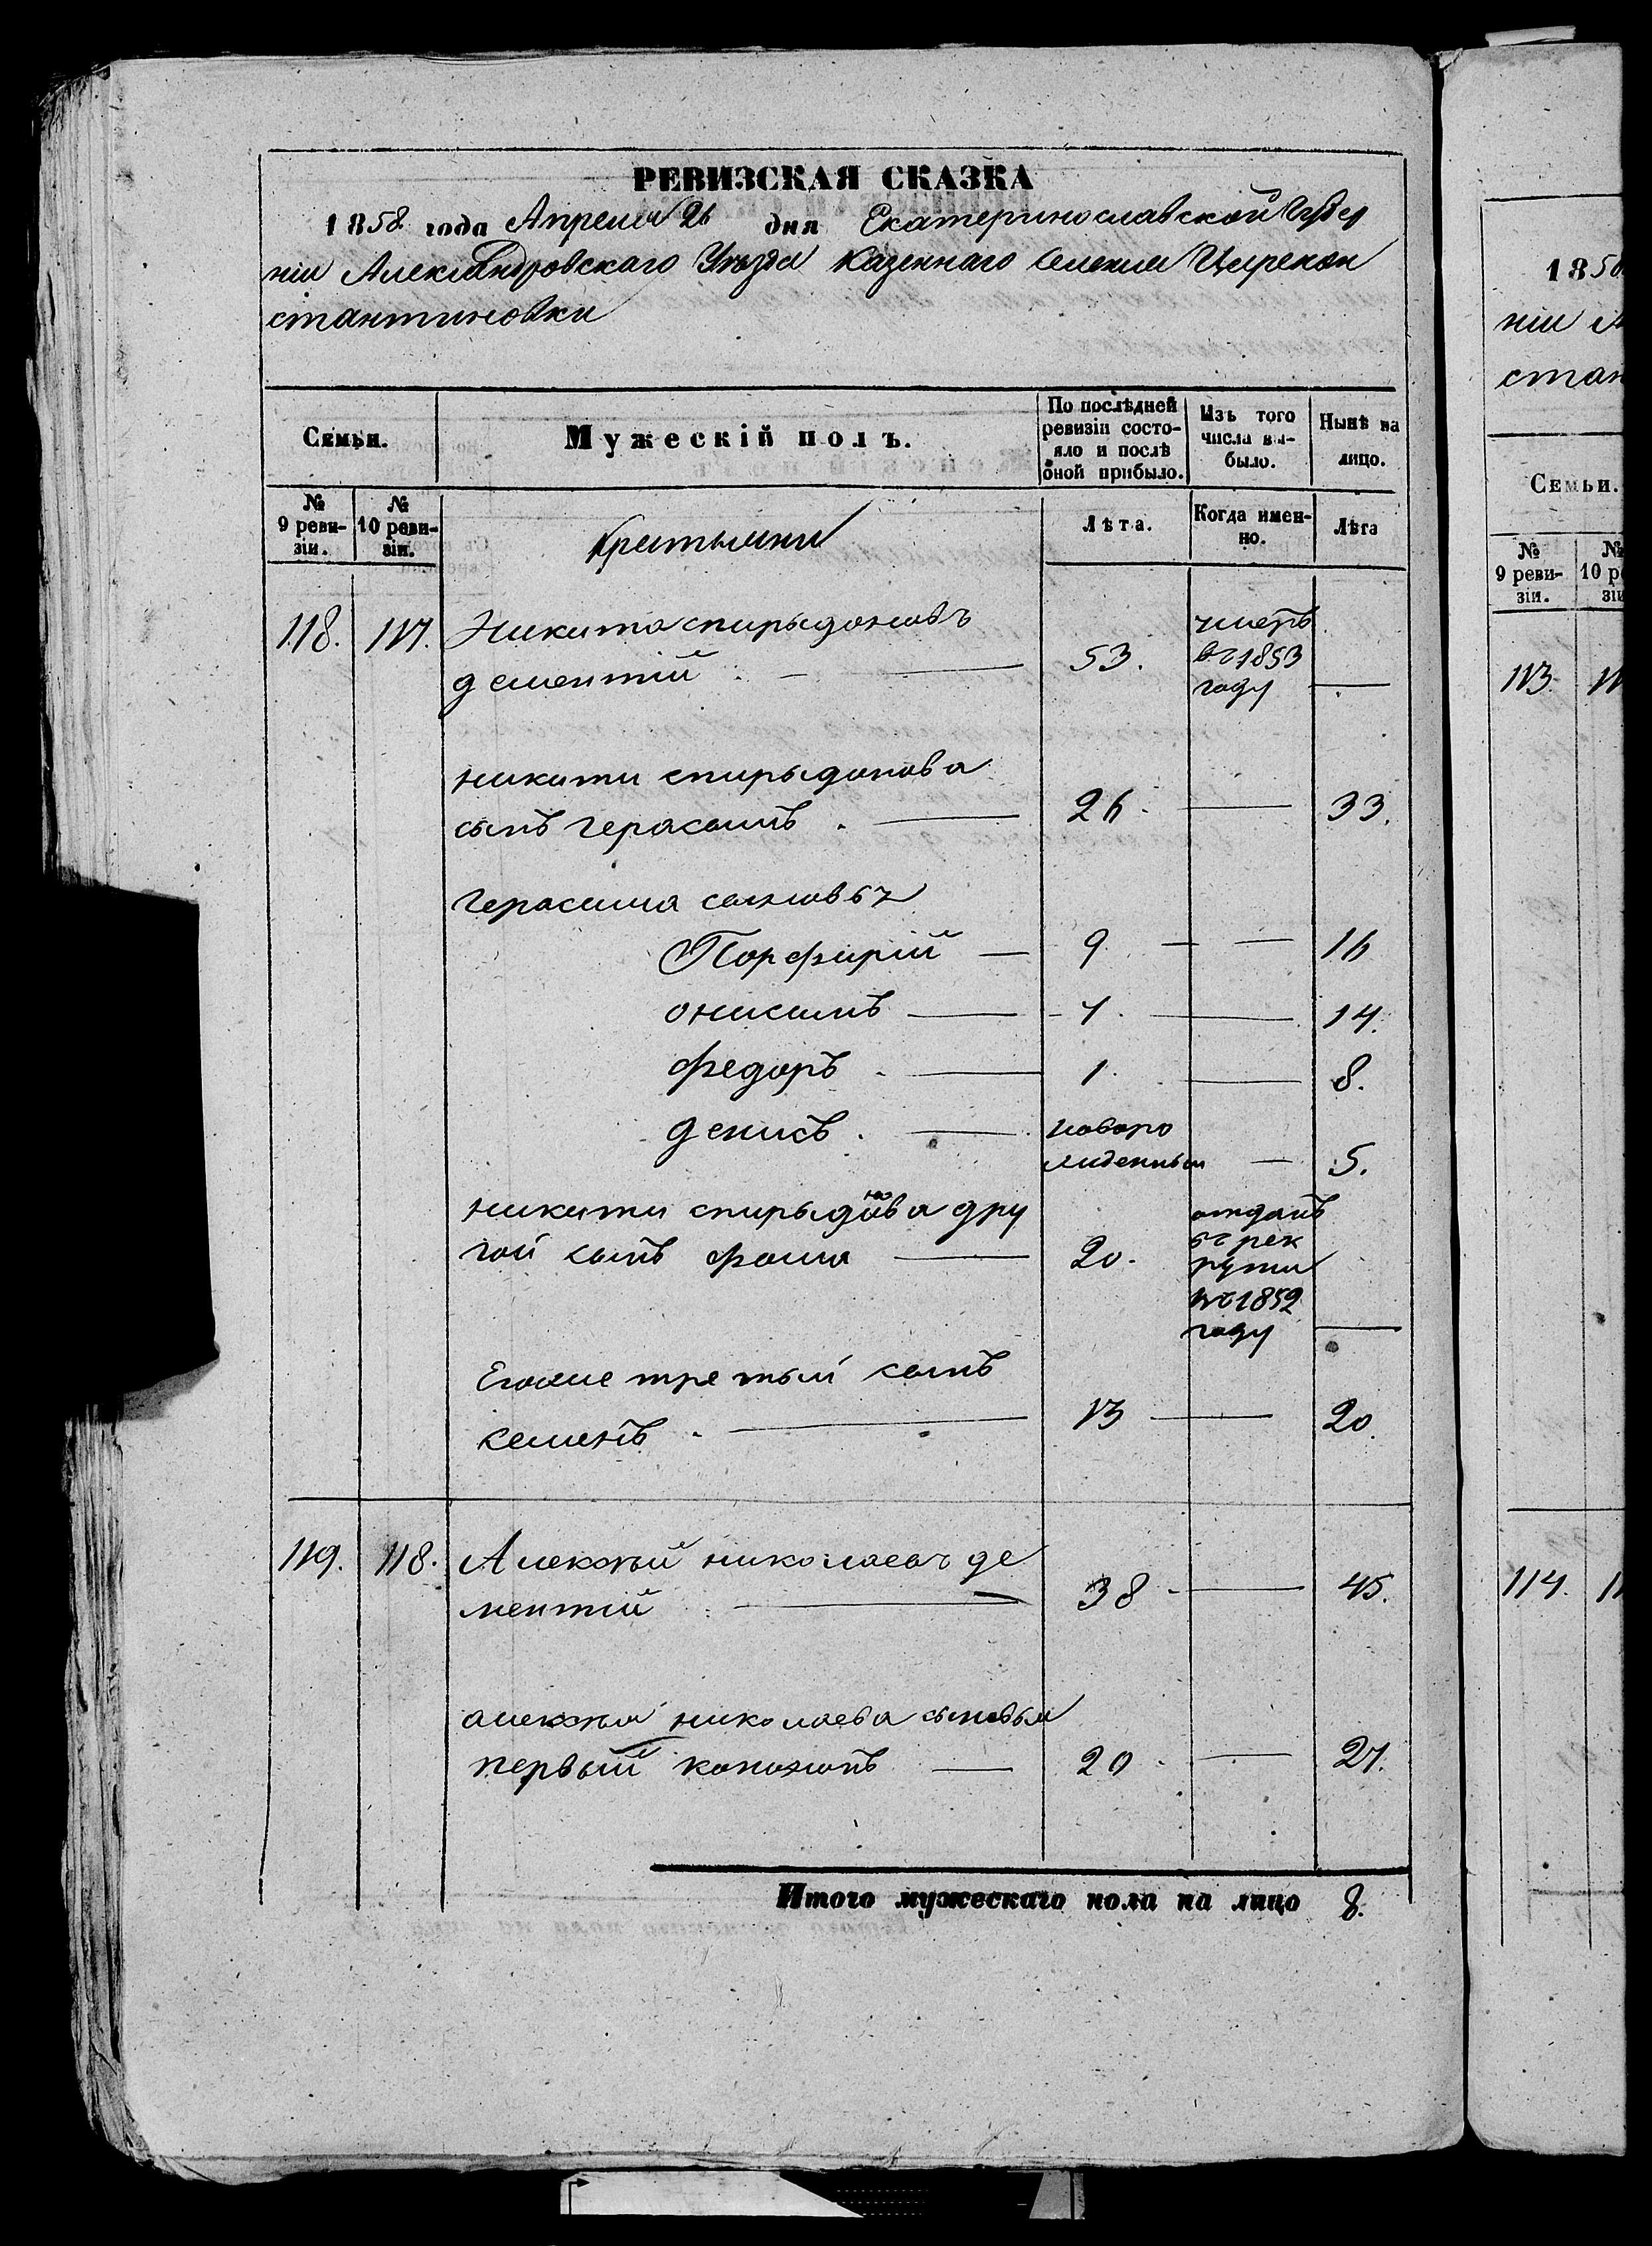 РЕВИЗСКАЯ СКАЗКА
1858 года Апреля 26 дня Екатеринославской Губер
ніи Александровскаго Уѣзда Казеннаго Селенія Цирекон
стантиновки
Семьи.
Мужескій полъ.
По послѣдней
ревизіи состо-
яло и послѣ
оной прибыло.
Изъ того
числа вы-
было.
Нынѣ на
лицо.
№
9 реви-
зіи.
№
10 реви-
зіи.
Лѣта.
Когда имен-
но.
Лѣта
118. 117. Никита спирыдоновъ
дементій 53.
умеръ
въ 1853
году
никити спирыдонова
сынъ герасимъ 26 33.
герасима сыновья
Порфирій 9 16
онисимъ 7 14.
федоръ 1. 8.
денисъ новоро
жденный 5.
никити спирыдонова дру
гой сынъ фома 20.
отданъ
въ рек
рути
въ 1852
году
Егоже третый сынъ
семенъ 13 20.
119. 118. Алексѣй николаевъ де
ментій 38 45.
алексѣя николаева сыновья
первый кононъ 20 27.
Итого мужескаго пола на лицо 8.
1858
ніи А
стан
Семьи.
№
9 реви-
зіи.
№
10 ре
зіи
113
114.